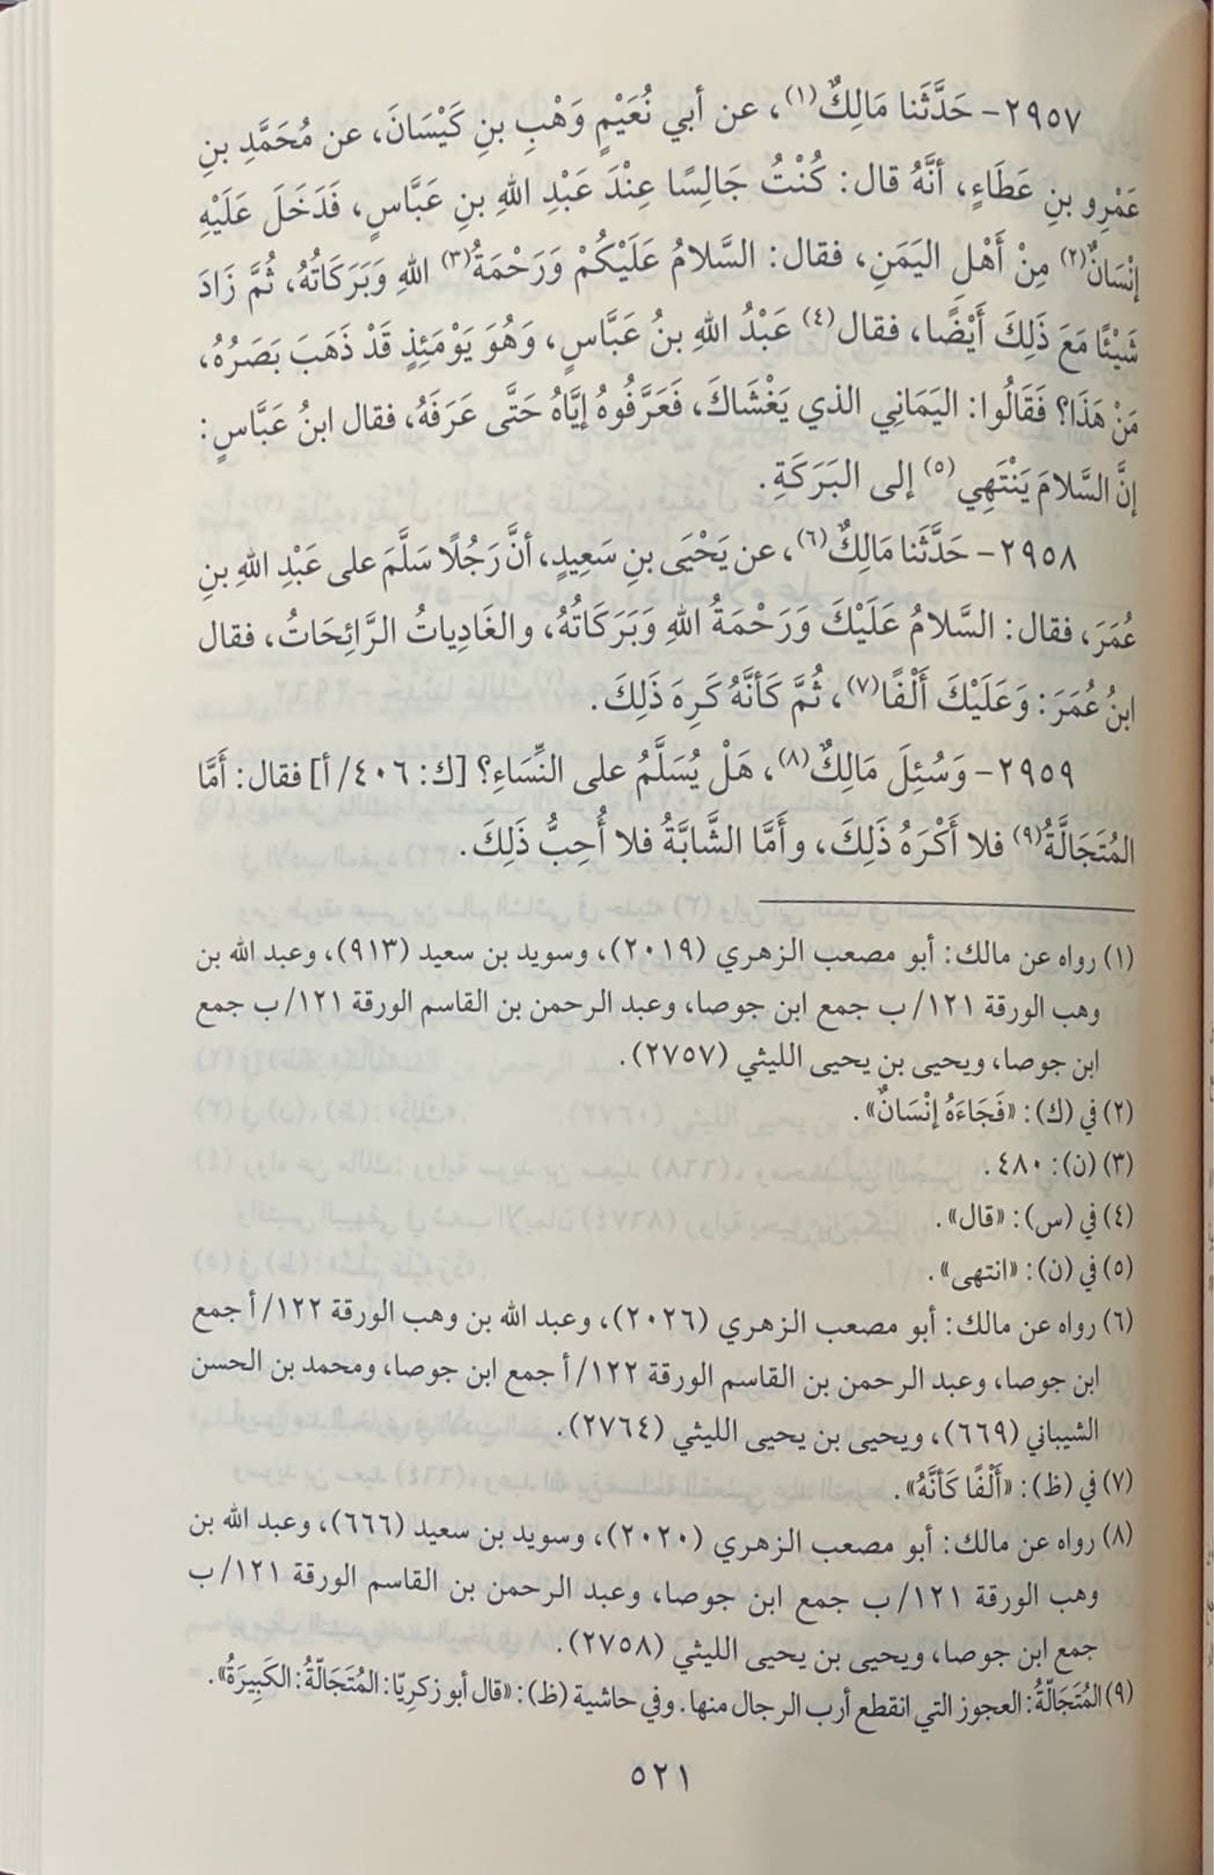 ٢٩٥٧- حَدَّثَنا مَالِكٌ(١)، عن أبي نُعَيْمٍ وَهْبِ بنِ كَيْسَانَ، عن مُحَمَّدِ بنِ
عَمْرِو بنِ عَطَاءٍ، أنَّهُ قال: كُنْتُ جَالِسًا عِنْدَ عَبْدِ اللهِ بنِ عَبَّاسٍ، فَدَخَلَ عَلَيْهِ
إنْسَانٌ(٢) مِنْ أَهْلِ اليَمَنِ، فقال: السَّلامُ عَلَيْكُمْ وَرَحْمَةُ(٣) اللهِ وَبَرَكَاتُهُ، ثُمَّ زَادَ
شَيْئًا مَعَ ذَلِكَ أَيْضًا، فقال(٤) عَبْدُ اللهِ بنُ عَبَّاسٍ، وَهُوَ يَوْمَئِذٍ قَدْ ذَهَبَ بَصَرُهُ،
مَنْ هَذَا؟ فَقَالُوا: اليَمَانِي الذي يَغْشَاكَ، فَعَرَّفُوهُ إيَّاهُ حَتَّى عَرَفَهُ، فقال ابنُ عَبَّاسٍ:
إنَّ السَّلامَ يَنْتَهِي(٥) إلى البَرَكَةِ.
٢٩٥٨- حَدَّثَنا مَالِكٌ(٦)، عن يَحْيَى بنِ سَعِيدٍ، أنَّ رَجُلًا سَلَّمَ على عَبْدِ اللهِ بنِ
عُمَرَ، فقال: السَّلامُ عَلَيْكَ وَرَحْمَةُ اللهِ وَبَرَكَاتُهُ، والغَادِياتُ الرَّائِحَاتُ، فقال
ابنُ عُمَرَ: وَعَلَيْكَ أَلْفًا(٧)، ثُمَّ كَأنَّهُ كَرِهَ ذَلِكَ.
٢٩٥٩- وَسُئِلَ مَالِكٌ(٨)، هَلْ يُسَلَّمُ على النِّسَاءِ؟ [ك: ٤٠٦/ أ] فقال: أَمَّا
المُتَجَالَّةُ(٩) فلا أَكْرَهُ ذَلِكَ، وأَمَّا الشَّابَّةُ فلا أُحِبُّ ذَلِكَ.
(١) رواه عن مالك: أبو مصعب الزهري (٢٠١٩)، وسويد بن سعيد (٩١٣)، وعبد الله بن
وهب الورقة ١٢١/ ب جمع ابن جوصا، وعبد الرحمن بن القاسم الورقة ١٢١/ ب جمع
ابن جوصا، ويحيى بن يحيى الليثي (٢٧٥٧).
(٢) في (ك): «فَجَاءَهُ إنْسَانٌ».
(٣) (ن): ٤٨٠.
(٤) في (س): «قال».
(٥) في (ن): «انتهى».
(٦) رواه عن مالك: أبو مصعب الزهري (٢٠٢٦)، وعبد الله بن وهب الورقة ١٢٢/ أ جمع
ابن جوصا، وعبد الرحمن بن القاسم الورقة ١٢٢/ أ جمع ابن جوصا، ومحمد بن الحسن
الشيباني (٦٦٩)، ويحيى بن يحيى الليثي (٢٧٦٤).
(٧) في (ظ): «أَلْفًا كَأنَّهُ».
(٨) رواه عن مالك: أبو مصعب الزهري (٢٠٢٠)، وسويد بن سعيد (٦٦٦)، وعبد الله بن
وهب الورقة ١٢١/ ب جمع ابن جوصا، وعبد الرحمن بن القاسم الورقة ١٢١/ ب
جمع ابن جوصا، ويحيى بن يحيى الليثي (٢٧٥٨).
(٩) المُتَجَالّةُ: العجوز التي انقطع أرب الرجال منها. وفي حاشية (ظ): «قال أبو زكريّا: المُتَجَالّةُ: الكَبِيرَةُ».
٥٢١